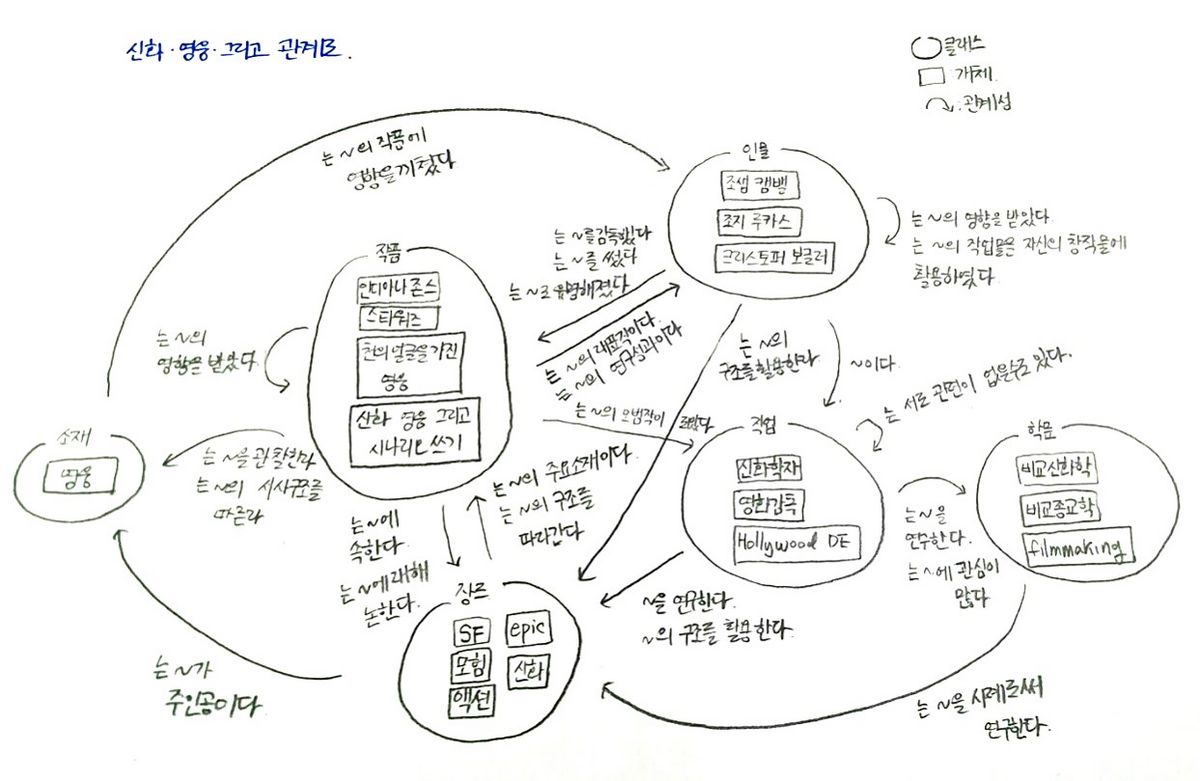 신화·영웅·그리고 관계도.
클래스
개체
관계성
는 ~의 작품에
영향을 끼쳤다
인물
조셉 캠벨
조지 루카스
크리스토퍼 보글러
는 ~의 영향을 받았다.
는 ~의 작업물은 자신의 창작물에
활용하였다.
는 ~를 감독했다
는 ~를 썼다
는 ~로 유명해졌다
작품
인디아나 존스
스타워즈
천의 얼굴을 가진
영웅
신화 영웅 그리고
시나리오 쓰기
는 ~의
영향을 받았다.
는 ~의 대표작이다.
는 ~의 연구성과이다
는 ~의
구조를 활용한다
~이다.
는 서로 관련이 없을수도 있다.
는 ~의 모범작이
되었다
소재
영웅
는 ~을 관찰한다
는 ~의 서사구조를
따른다
는 ~의 주요소재이다.
는 ~의 구조를
따라간다
직업
신화학자
영화감독
Hollywood DE
학문
비교신화학
비교종교학
filmmaking
는 ~을
연구한다.
는 ~에 관심이
많다
는 ~에
속한다.
는 ~에 대해
논한다.
장르
SF
epic
모험
신화
액션
~을 연구한다.
~의 구조를 활용한다.
는 ~가
주인공이다.
는 ~을 사례로써
연구한다.